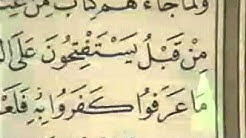 وَلَمَّا جَاءَهُمْ كِتَابٌ مِنْ
مِنْ قَبْلُ يَسْتَفْتِحُونَ عَلَى
مَا عَرَفُوا كَفَرُوا بِهِ